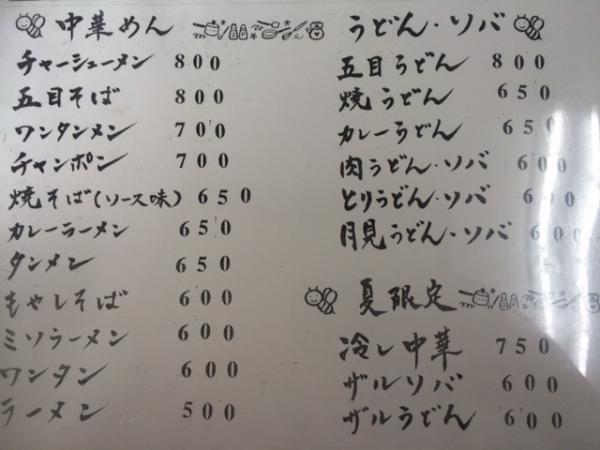 中華めん
チャーシューメン 800
五目そば 800
ワンタンメン 700
チャンポン 700
焼そば(ソース味) 650
カレーラーメン 650
タンメン 650
もやしそば 600
ミソラーメン 600
ワンタン 600
ラーメン 500
うどん・ソバ
五目うどん 800
焼うどん 650
カレーうどん 650
肉うどん・ソバ 600
とりうどん・ソバ 600
月見うどん・ソバ 600
夏限定
冷し中華 750
ザルソバ 600
ザルうどん 600